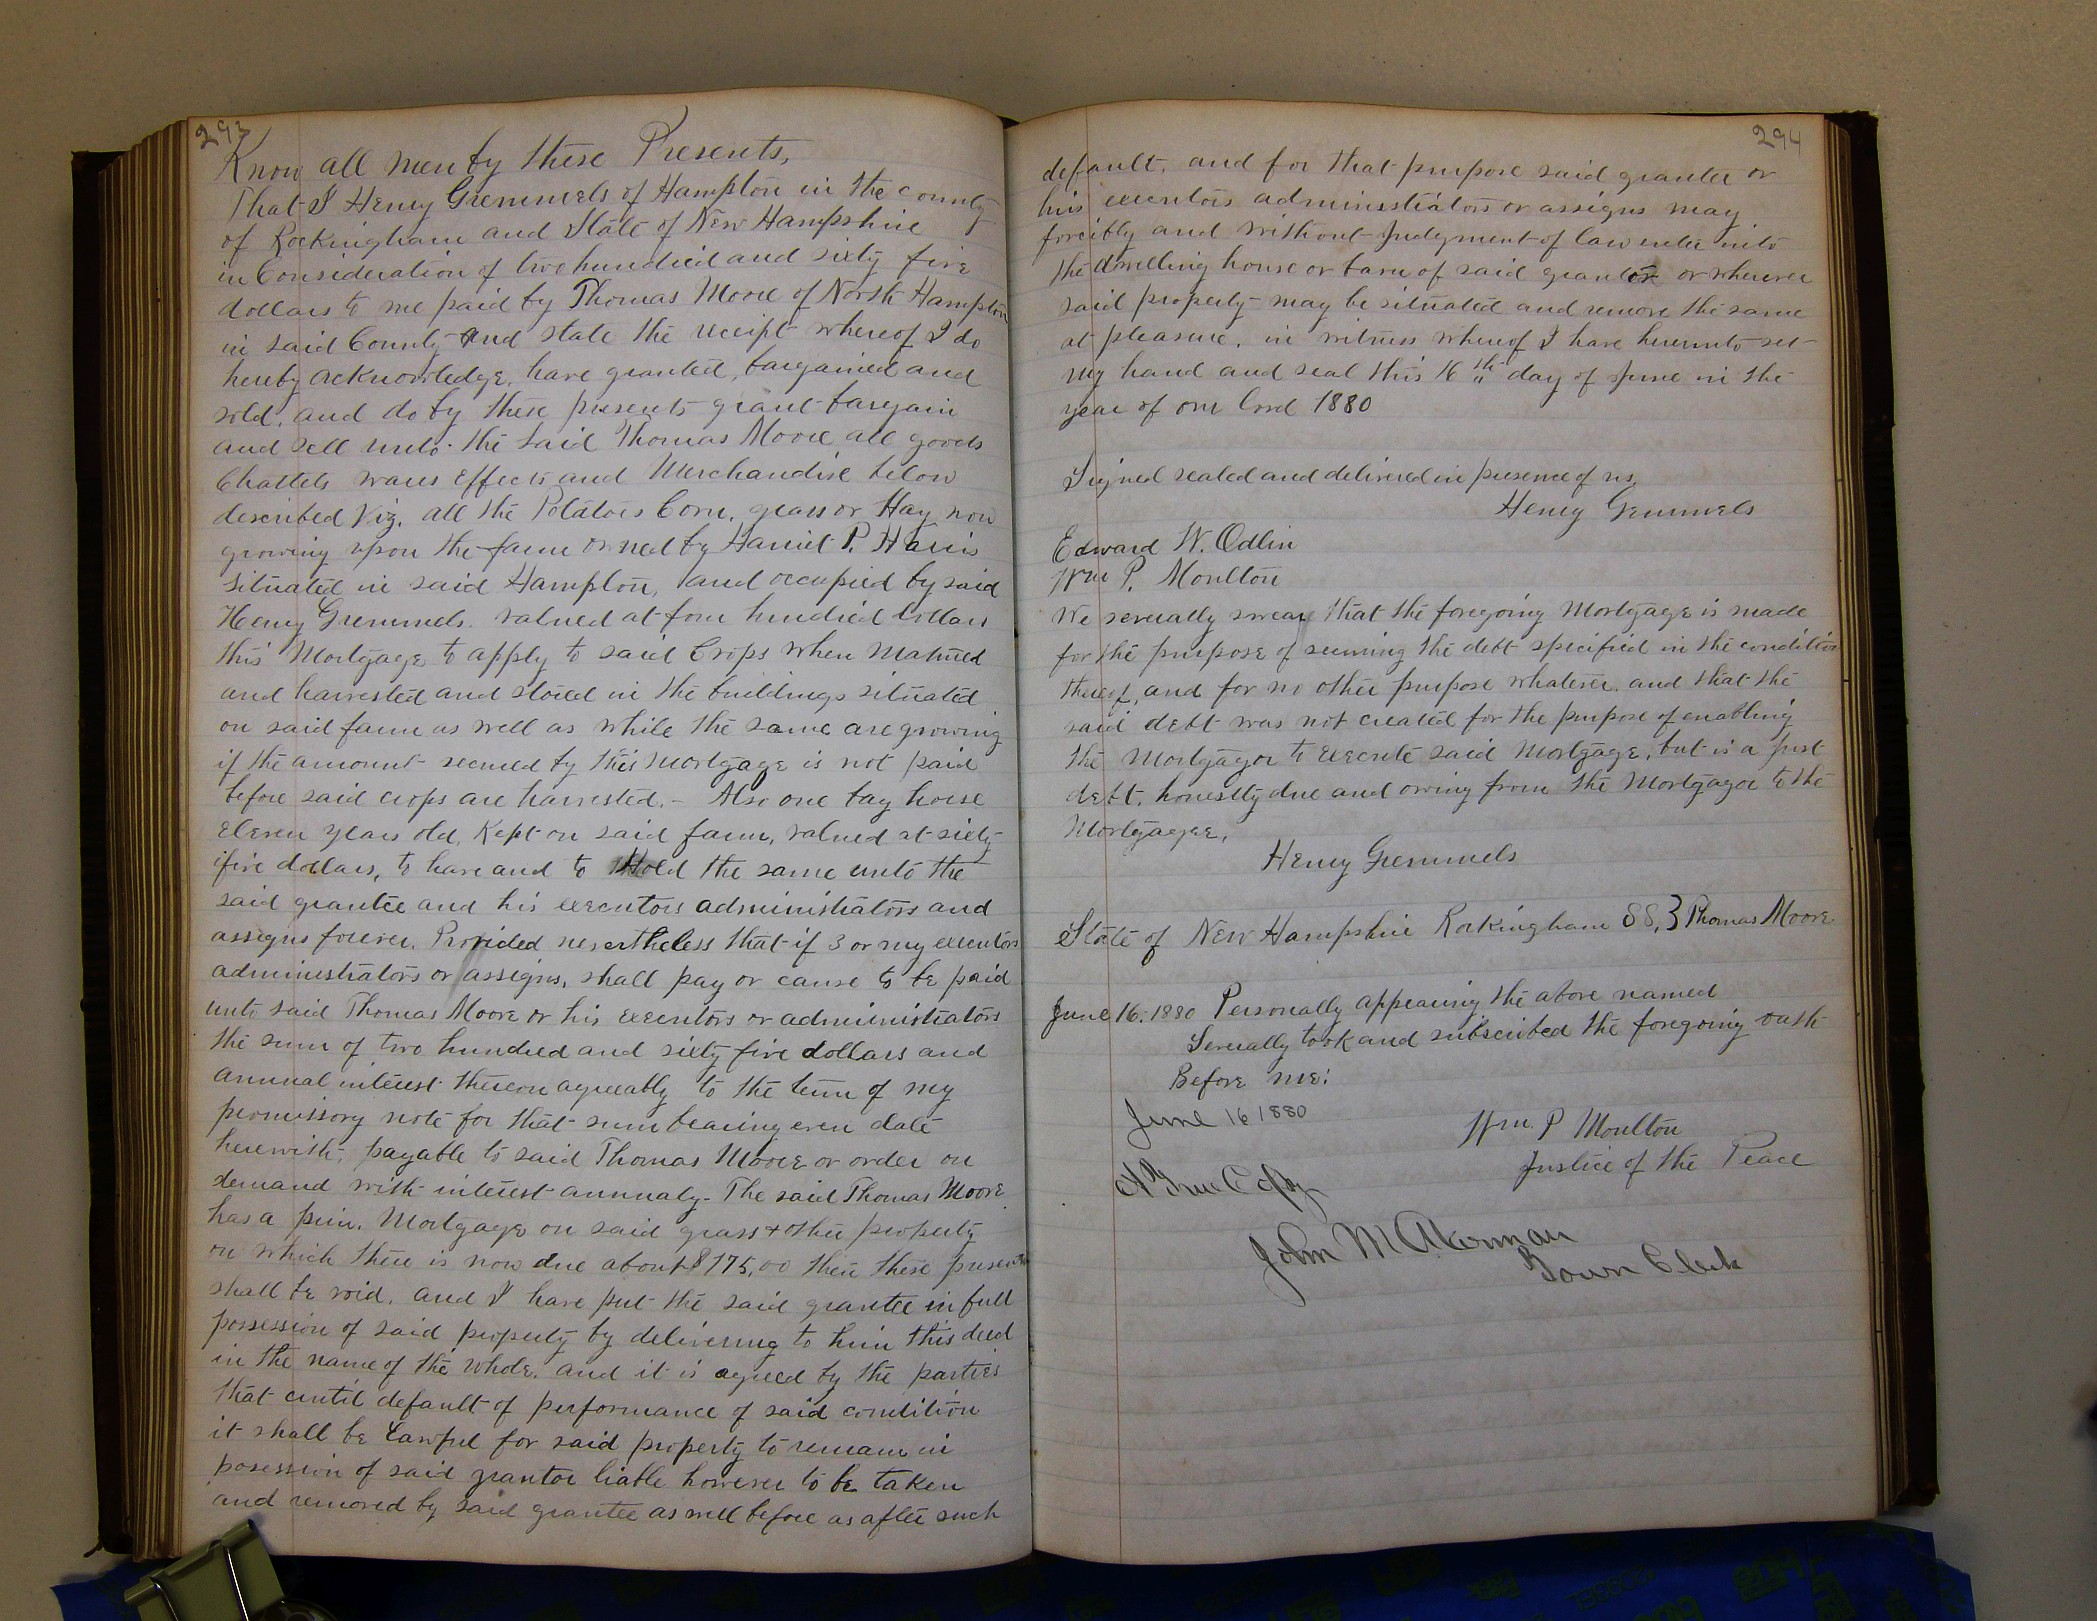 293
Know all men by these Presents,
That I Henry Gremmels of Hampton in the county
of Rockingham and State of New Hampshire
in Consideration of two hundred and sixty five
dollars to me paid by Thomas Moore of North Hampton
in said County and state the receipt whereof I do
hereby acknowledge, have granted, bargained and
sold, and do by these presents grant bargain
and sell unto the said Thomas Moore all goods
Chattels wares Effects and Merchandise below
described Viz. all the Potatoes Corn, grass or Hay now
growing upon the farm owned by Harriet P. Harris
situated in said Hampton, and occupied by said
Henry Gremmels. valued at four hundred Dollars
this Mortgage to apply to said Crops when Matured
and harvested and stored in the buildings situated
on said farm as well as while the same are growing
if the amount secured by this Mortgage is not paid
before said crops are harvested. - Also one bay horse
Eleven years old, Kept on said farm, valued at sixty
five dollars, to have and to Hold the same unto the
said grantee and his executors administrators and
assigns forever. Provided nevertheless that if I or my executors
administrators or assigns, shall pay or cause to be paid
unto said Thomas Moore or his executors or administrators
the sum of two hundred and sixty five dollars and
annual interest thereon agreeably to the term of my
promissory note for that sum bearing even date
herewith, payable to said Thomas Moore or order on
demand with interest annualy. The said Thomas Moore
has a priv. Mortgage on said grass & other property
on which there is now due about $175,00 then these presents
shall be void. and I have put the said grantee in full
possession of said property by delivering to him this deed
in the name of the whole. and it is agreed by the parties
that until default of performance of said condition
it shall be Lawful for said property to remain in
posession of said grantor liable however to be taken
and removed by said grantee as well before as after such
294
default. and for that purpose said grantee or
his executors administrators or assigns may
forcibly and without Judgment of law enter into
the dwelling house or barn of said grantor or wherever
said property may be situated and remove the same
at pleasure. in witness whereof I have hereunto set
my hand and seal this 16th day of June in the
year of our Lord 1880
Signed sealed and delivered in presence of us,
Henry Gemmels
Edward W. Odlin
Wm P. Moulton
We severally swear that the foregoing Mortgage is made
for the purpose of securing the debt specified in the condition
thereof, and for no other purpose whatever. and that the
said debt was not created for the purpose of enabling
the Mortgagor to execute said Mortgage, but is a just
debt, honestly due and owing from the Mortgagor to the
Mortgagee.
Henry Gremmels
State of New Hampshire Rockingham SS, } Thomas Moore
June 16. 1880 Personally appearing the above named
Severally took and subscribed the foregoing oath
Before me:
June 16 1880
Wm. P Moulton
Justice of the Peace
A True Copy
John M Akerman
Town Clerk